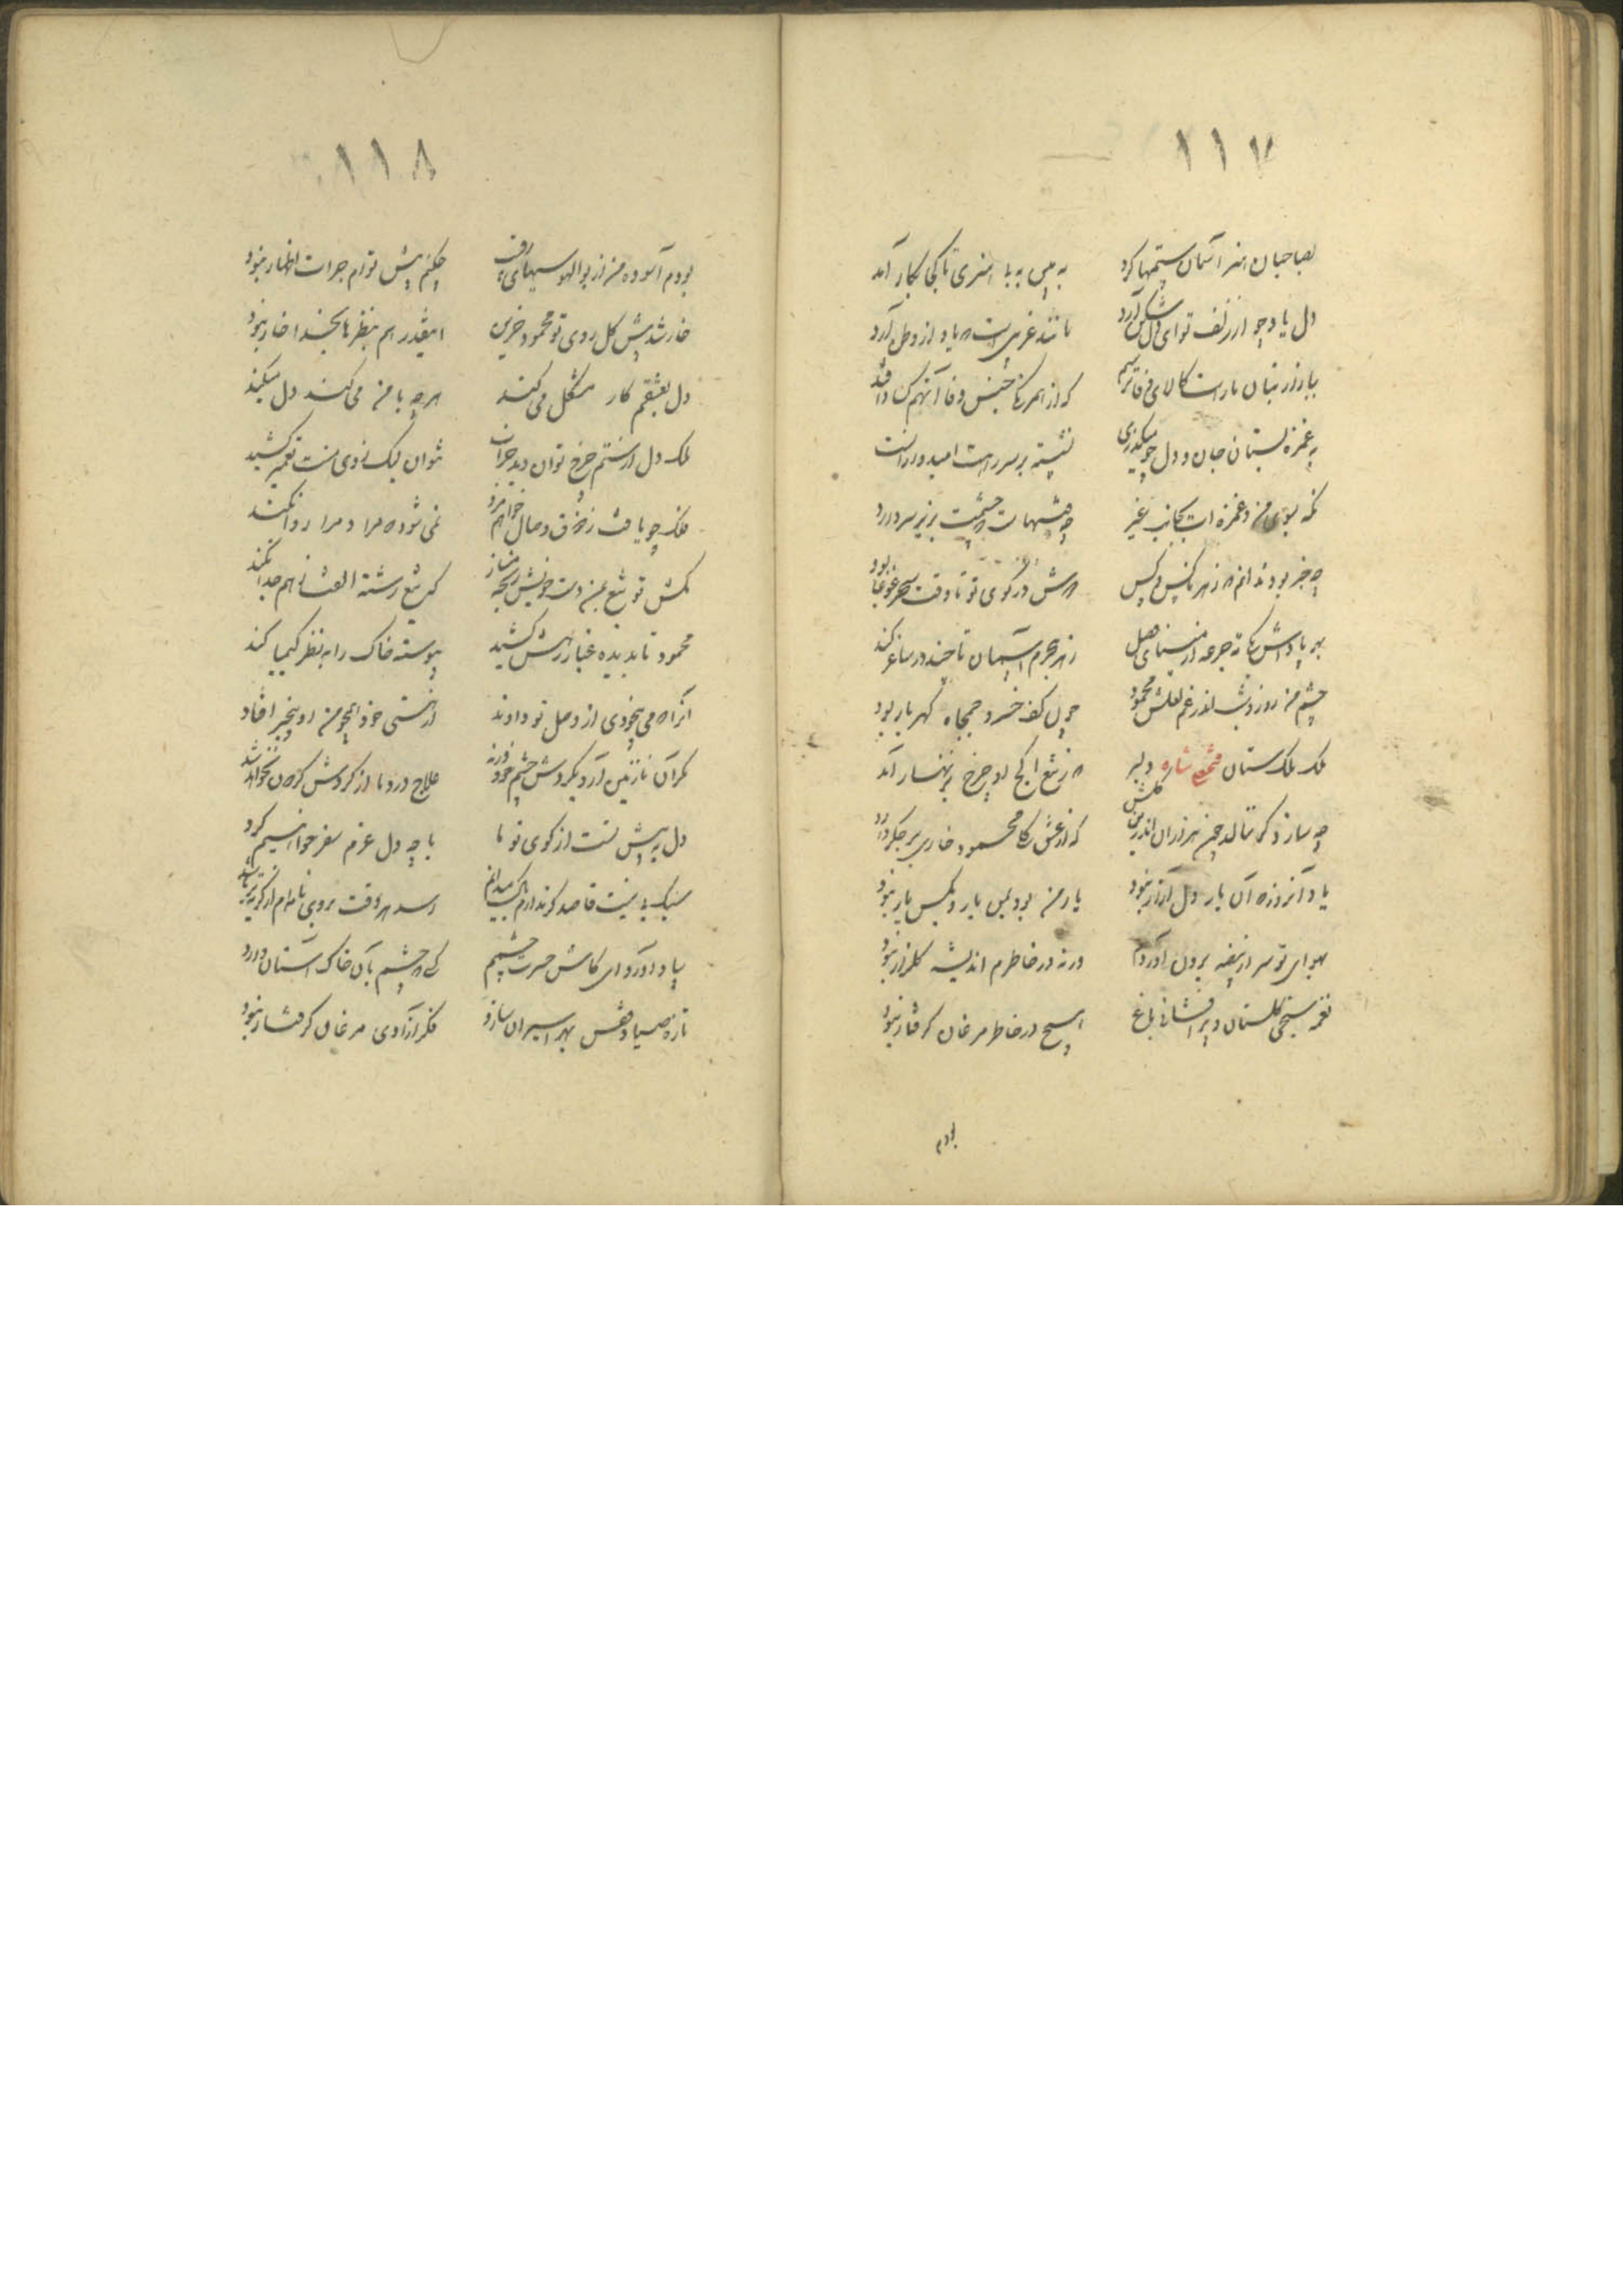 ١١٧
بصاحبان هنر آسمان ستمها کرد
به بین به بی هنری تا کجا بکار آمد
دل یاد چو از زلف تو ای آرد
مانند غریبی است که یاد از وطن آرد
ببازار بتان کالای وفا
که از هر جنس وفا آنهم
به غمزه بستان جان و دل چو میگذری
نشسته بر سر راهت امیدواران است
نگه بسوی من و غمزه ات بجانب غیر
چه چشمت بزیر سر دارد
چه خبر بود ندانم که ز هر ناکس و کس
دوش در کوی تو تا وقت سحر غوغا بود
بهر جرعه از
ز هر جرم آسمان تا چند در ساغر کند
چشم من روز و شب اندر غم لعلش محمود
چون کف خسرو جمجاه گهر بار بود
ملک ملک ستان فتحعلی شاه دلیر
که ز تیغ کج او چرخ بزنهار آمد
چه سازد گر ننالد چون هزاران اندرین گلشن
که از عشق گل محمود خاری بر جگر دارد
یاد آنروز که آن یار دل آزار نبود
یار من بود بمن یار و بکس یار نبود
بهوای تو سر از بیضه برون آوردم
ورنه در خاطرم اندیشه گلزار نبود
نغمه سنجی گلستان و پر افشانی باغ
هیچ در خاطر مرغان گرفتار نبود
بودم
١١٨
بودم آسوده من از بوالهوسیهای رقیب
چکنم پیش توام جرات اظهار نبود
خار شد پیش گل روی تو محمود حزین
اینقدر هم بنظرها بخدا خار نبود
دل بعشقم کار مشکل می کند
هر چه با من می کند دل میکند
ملک دل از ستم چرخ توان دید خراب
نتوان لیک ز دوی منت تعمیر کشید
فلک چو یافت ز ذوق وصال خواهم مرد
نمی شود که مرا و مرا روا نکند
بکش تو تیغ بمن دست خویش رنجه مساز
که تیغ رشته الفت ز هم جدا نکند
محمود تا بدیده غبار رهش کشید
پیوسته خاک را بنظر کیمیا کند
آنرا که می بیخودی از وصل تو دادند
از هستی خود همچو من او بیخبر افتاد
مگر آن نازنین آرد بگردش چشم خود ورنه
علاج درد ما از گردش گردون نخواهد شد
دل به پیش تست از کوی تو ما
با چه دل عزم سفر خواهیم کرد
سبک پی نیست قاصد گر ندارم
رسد هر وقت بروی نامه ام از گریه تر باشد
بیاد آورد ای کاش حسرت چشمم
کسی که چشم بآن خاک آستان دارد
تازه صیاد قفس بهر اسیران سازد
فکر آزادی مرغان گرفتار نبود